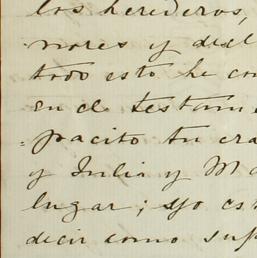 los herederos,
nores y del
todo esto he co
en el testam
pacito tu era
y Julia y Ma
lugar; yo es
decir como sup